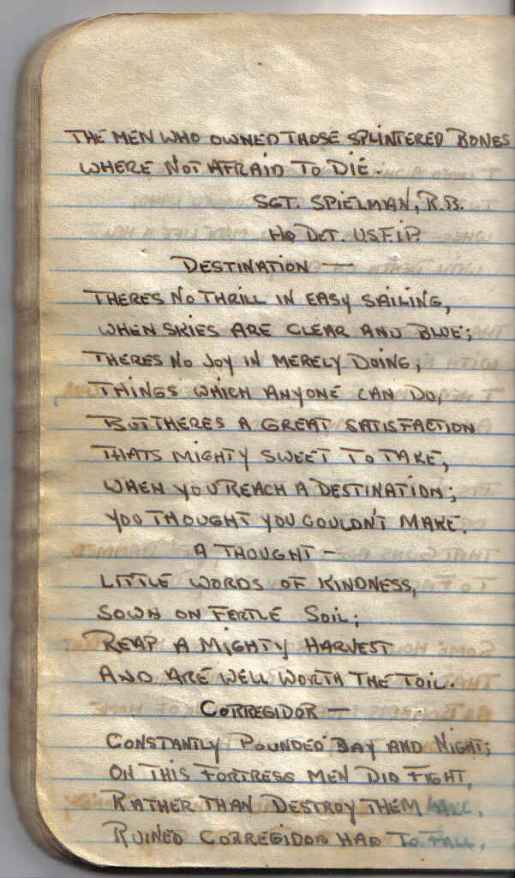 THE MEN WHO OWNED THOSE SPLINTERED BONES
WHERE NOT AFRAID TO DIE.
SGT. SPIELMAN, R.B.
HQ DET. USFIP.
DESTINATION —
THERES NO THRILL IN EASY SAILING,
WHEN SKIES ARE CLEAR AND BLUE;
THERES NO JOY IN MERELY DOING,
THINGS WHICH ANYONE CAN DO,
BUT THERES A GREAT SATISFACTION
THATS MIGHTY SWEET TO TAKE,
WHEN YOU REACH A DESTINATION;
YOU THOUGHT YOU COULDN'T MAKE.
A THOUGHT —
LITTLE WORDS OF KINDNESS,
SOWN ON FERTLE SOIL;
REAP A MIGHTY HARVEST
AND ARE WELL WORTH THE TOIL.
CORREGIDOR —
CONSTANTLY POUNDED DAY AND NIGHT;
ON THIS FORTRESS MEN DID FIGHT,
RATHER THAN DESTROY THEM ALL,
RUINED CORREGIDOR HAD TO FALL.